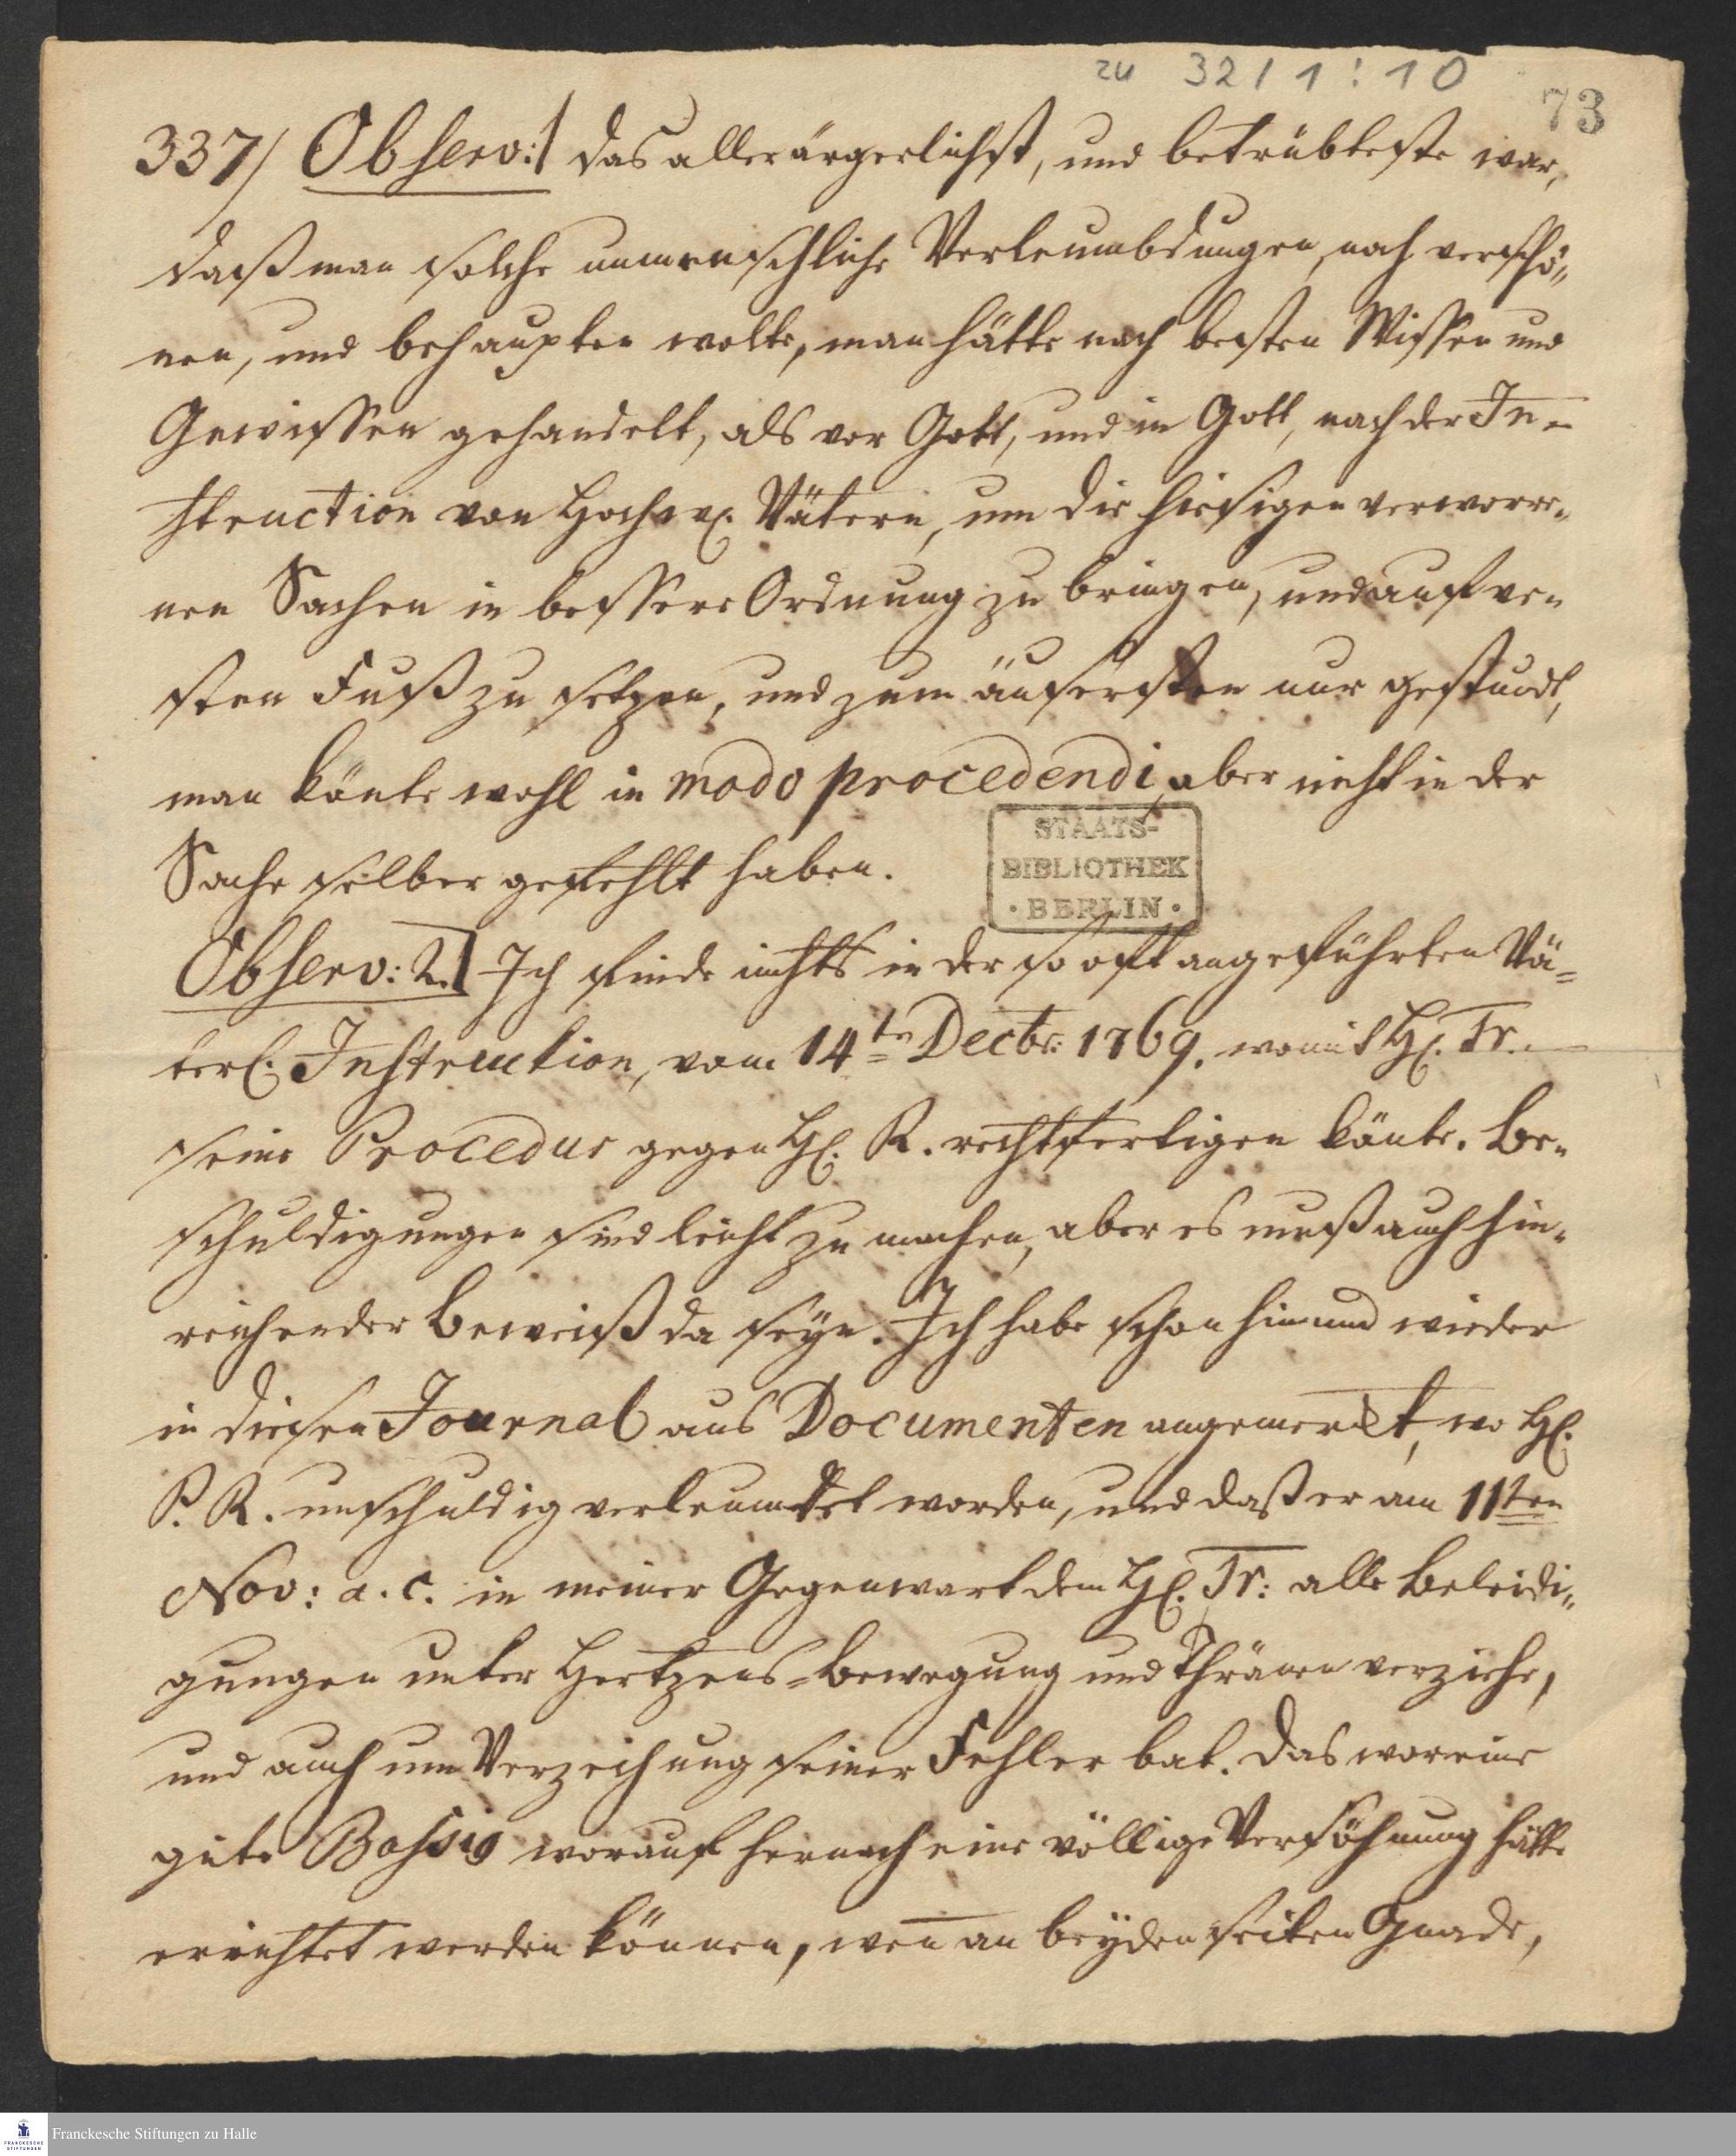 zu 32/1:10
73
337/ Observ:1 das allerärgerlichst, und betrübteste war,
daß man solche unmenschliche Verleumbdungen, noch verschö„
nen, und behaupten wolte, man hätte nach besten Wissen und
Gewissen gehandelt, als vor Gott, und in Gott, nach der In„
struction von Hochw. Vätern, um die hiesigen verworre„
nen Sachen in bessere Ordnung zu bringen, und auf ve„
sten Fuß zu setzen, und zum äusersten nur gestund,
man könte wohl in modo procedendi, aber nicht in der
Sache selber gefehlt haben.
STAATS-
BIBLIOTHEK
· BERLIN ·
Observ: 2. Ich finde nichts in der so oft angeführten Vä=
terl. Instruction, vom 14ten Decbr: 1769. womit H. Pr.
seine Procedur gegen H. R. rechtfertigen könte. Be„
schuldigungen sind leicht zu machen, aber es muß auch hin„
reichender Beweiß da seyn. Ich habe schon hin und wieder
in diesen Journal aus Documenten angemerckt, wo H.
P. R. unschuldig verleumdet worden, und daß er am 11ten
Nov: a. c. in meiner Gegenwart dem H. Pr: alle Beleidi„
gungen unter Hertzens=Bewegung und Thränen verziehe,
und auch um Verzeihung seiner Fehler bat. Das war eine
gute Bassis worauf hernach eine völlige Versöhnung hätte
errichtet werden können, wen̄ an beyden seiten Gnade,
Franckesche Stiftungen zu Halle